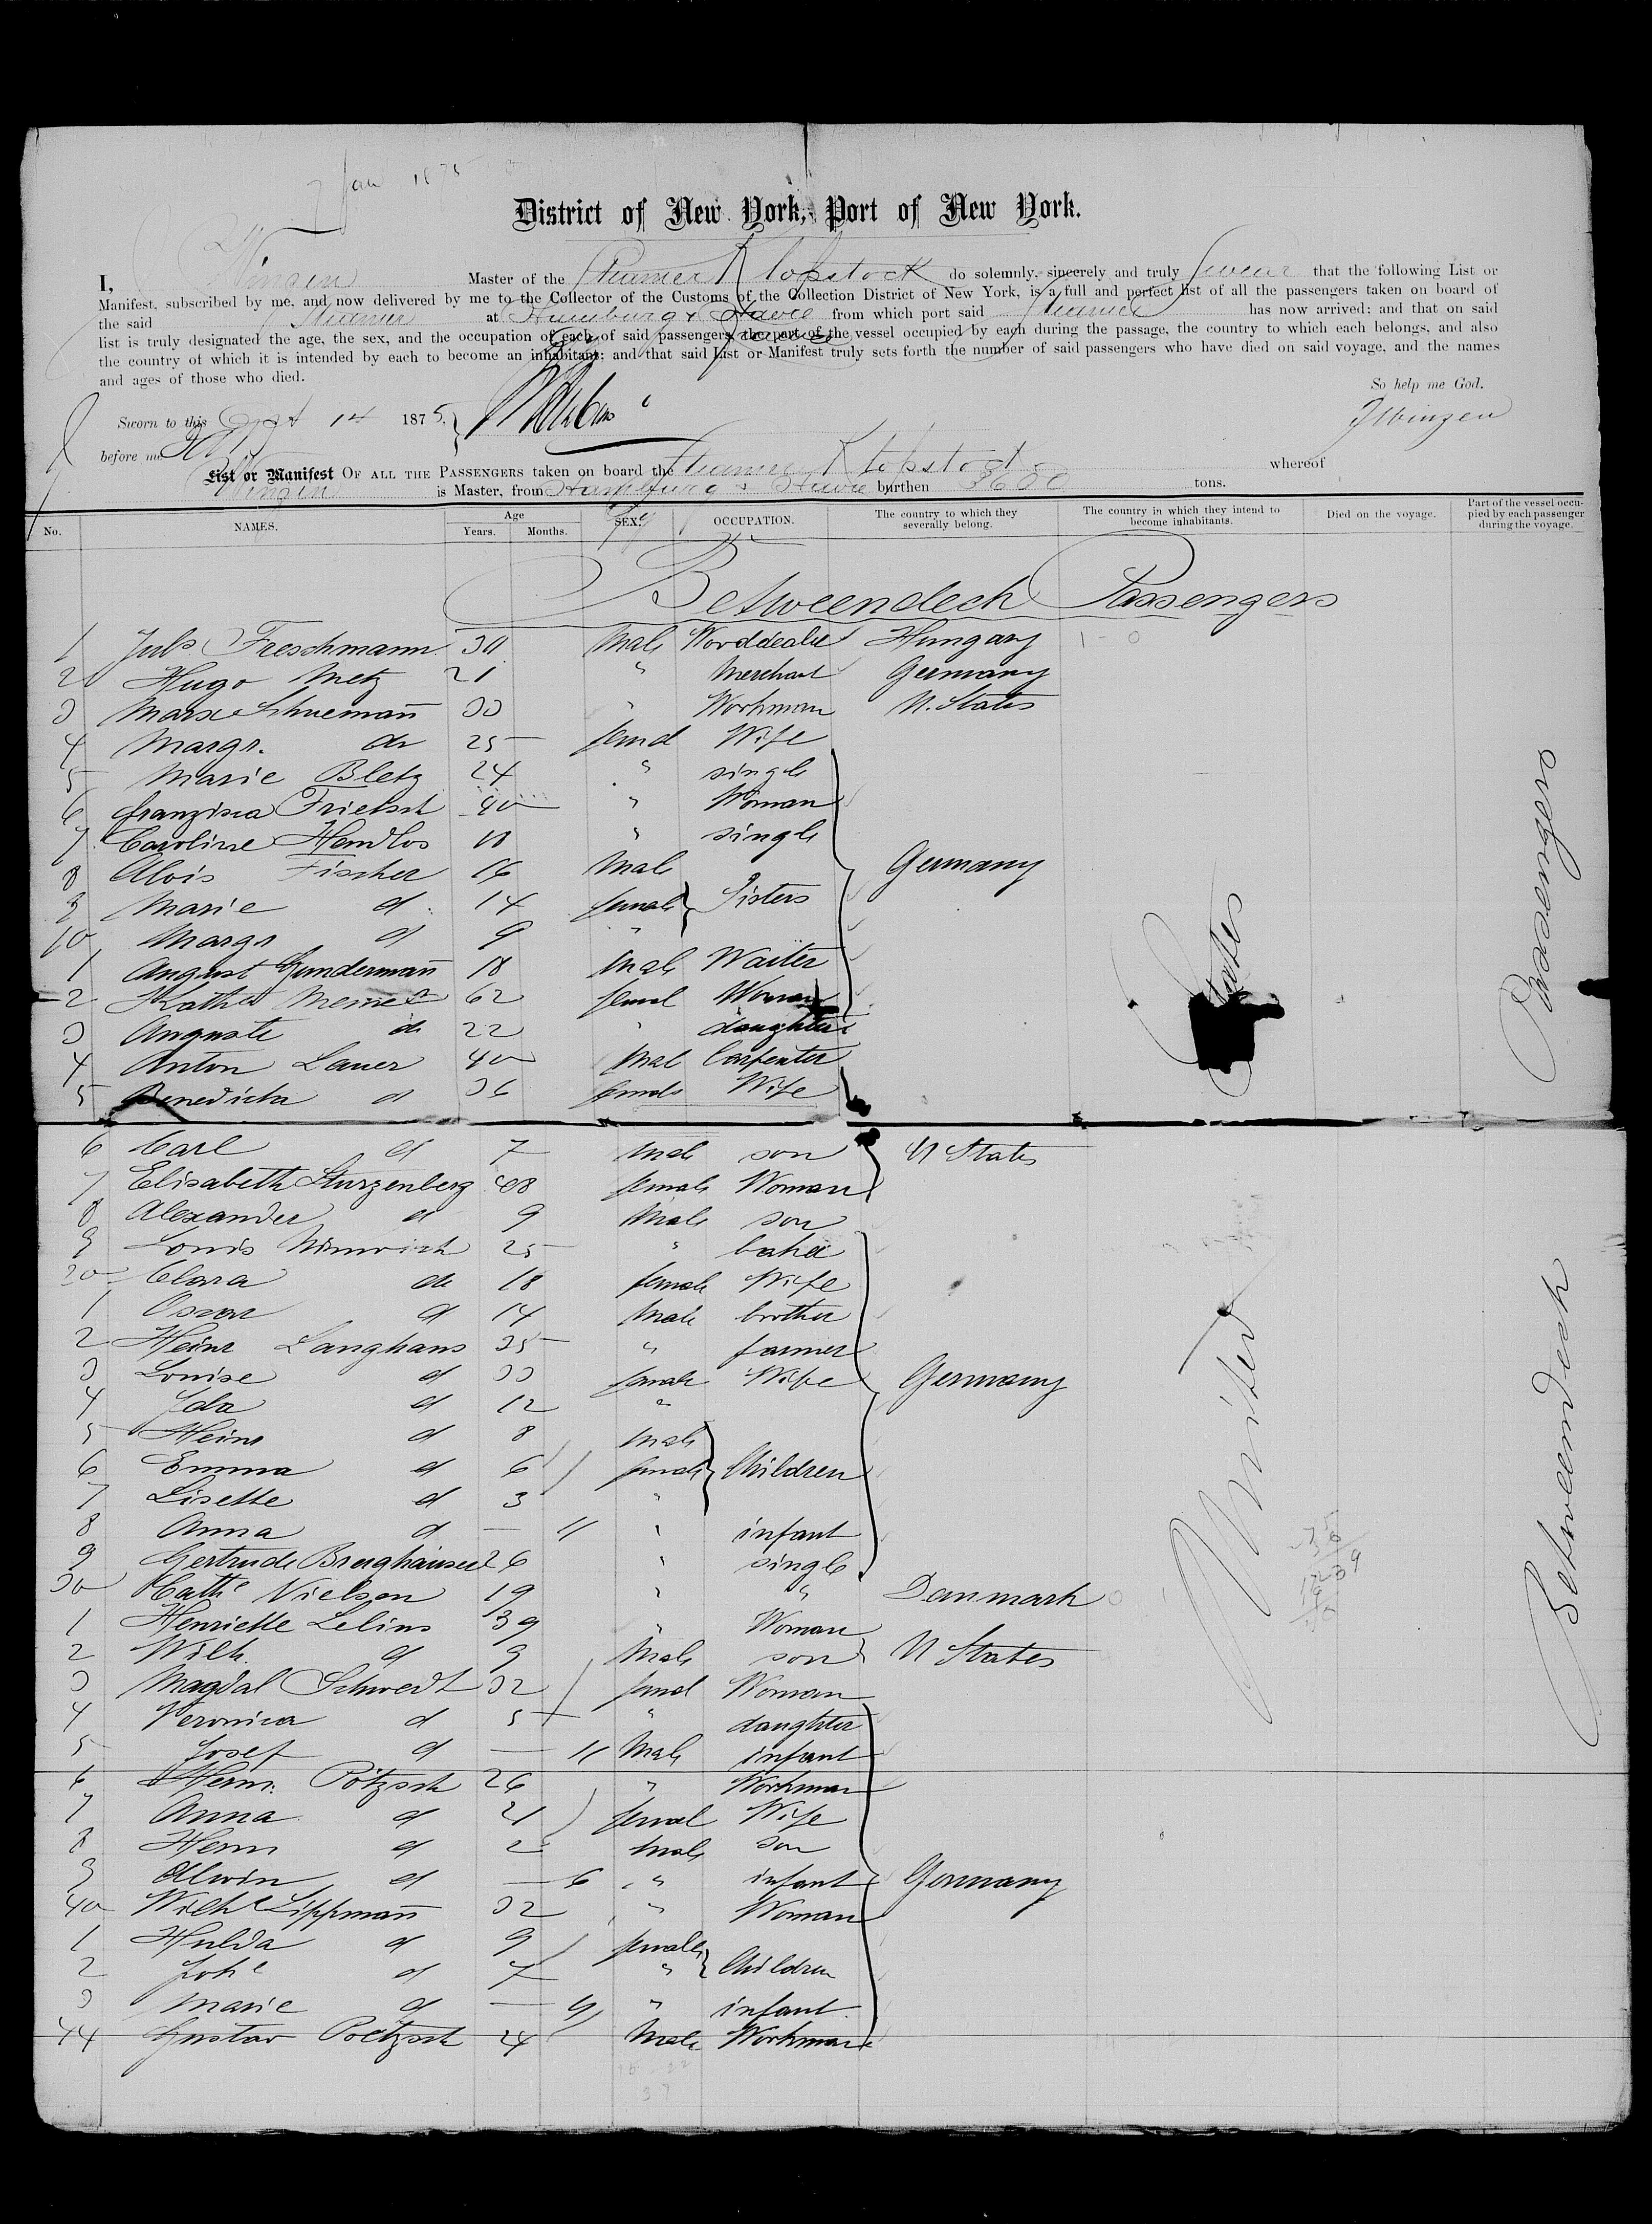 Jan 1875
District of New York, Port of New York.
I, Winzen Master of the Steamer Klopstock do solemnly, sincerely and truly Swear that the following List or
Manifest, subscribed by me, and now delivered by me to the Collector of the Customs of the Collection District of New York, is a full and perfect list of all the passengers taken on board of
the said Steamer at Hamburg & Havre from which port said Steamer has now arrived; and that on said
list is truly designated the age, the sex, and the occupation of each of said passengers, the part of the vessel occupied by each during the passage, the country to which each belongs, and also
the country of which it is intended by each to become an inhabitant; and that said List or Manifest truly sets forth the number of said passengers who have died on said voyage, and the names
and ages of those who died.
So help me God.
Sworn to this 14 1875.
Winzen
before me
List or Manifest OF ALL THE PASSENGERS taken on board the Steamer Klopstock whereof
Winzen is Master, from Hamburg & Havre burthen tons.
No. NAMES. Age Years. Months. SEX. OCCUPATION. The country to which they severally belong. The country in which they intend to become inhabitants. Died on the voyage. Part of the vessel occupied by each passenger during the voyage.
Betweendeck Passengers
1 Juls Freschmann Male Hungary
2 Hugo Metz 21 " Merchant Germany
3 Marx Schuemañ 33 " Workman U. States
4 Margr. do 25 femal Wife
5 Marie Bletz 24 " single
6 Franzisca Frielsch 40 " Woman
7 Caroline Hendlos " single
8 Alois Fischer 16 Male Germany
9 Marie d 14 female Sisters
10 Margr d 9 "
1 August Gundermañ 18 Male Waiter
2 62 femal Woman
3 Auguste do 22 " daughter
4 Anton Lauer 40 Male Carpenter
5 Benedicta d 36 female Wife
6 Carl d 7 Male son U States
7 Elisabeth Sturzenberg female Woman
8 Alexander d 9 Male son
9 Louis 25 " baker
20 Clara do 18 female Wife
1 Oscar d 14 Male brother
2 Heinr Langhans 35 " farmer
3 Louise d 33 female Wife Germany
4 Ida d 12 "
5 Heinr d 8 Male
6 Emma d 6 female Children
7 Lisette d 3 "
8 Anna d — 11 " infant
9 Gertrude Brughäuser 26 " single
30 Cathe Nielsen 19 " " Danmark
1 Henriette Lelius 39 " Woman
2 Wilh. d 9 Male son U States
3 Magdal Schwedt 32 femal Woman
4 Veronica d 5 " daughter
5 Josef d — 11 Male infant
6 Herm. Pötzsch 26 " Workman
7 Anna d 21 femal Wife
8 Herm d 2 Male son
9 Alwin d — 6 " infant Germany
40 Wilhe Lippmañ 32 " Woman
1 Hulda d 9 female
2 Johe d 7 " Children
3 Marie d — 9 " infant
44 Gustav Poetzsch 24 Male Workman
United States
Betweendeck Passengers